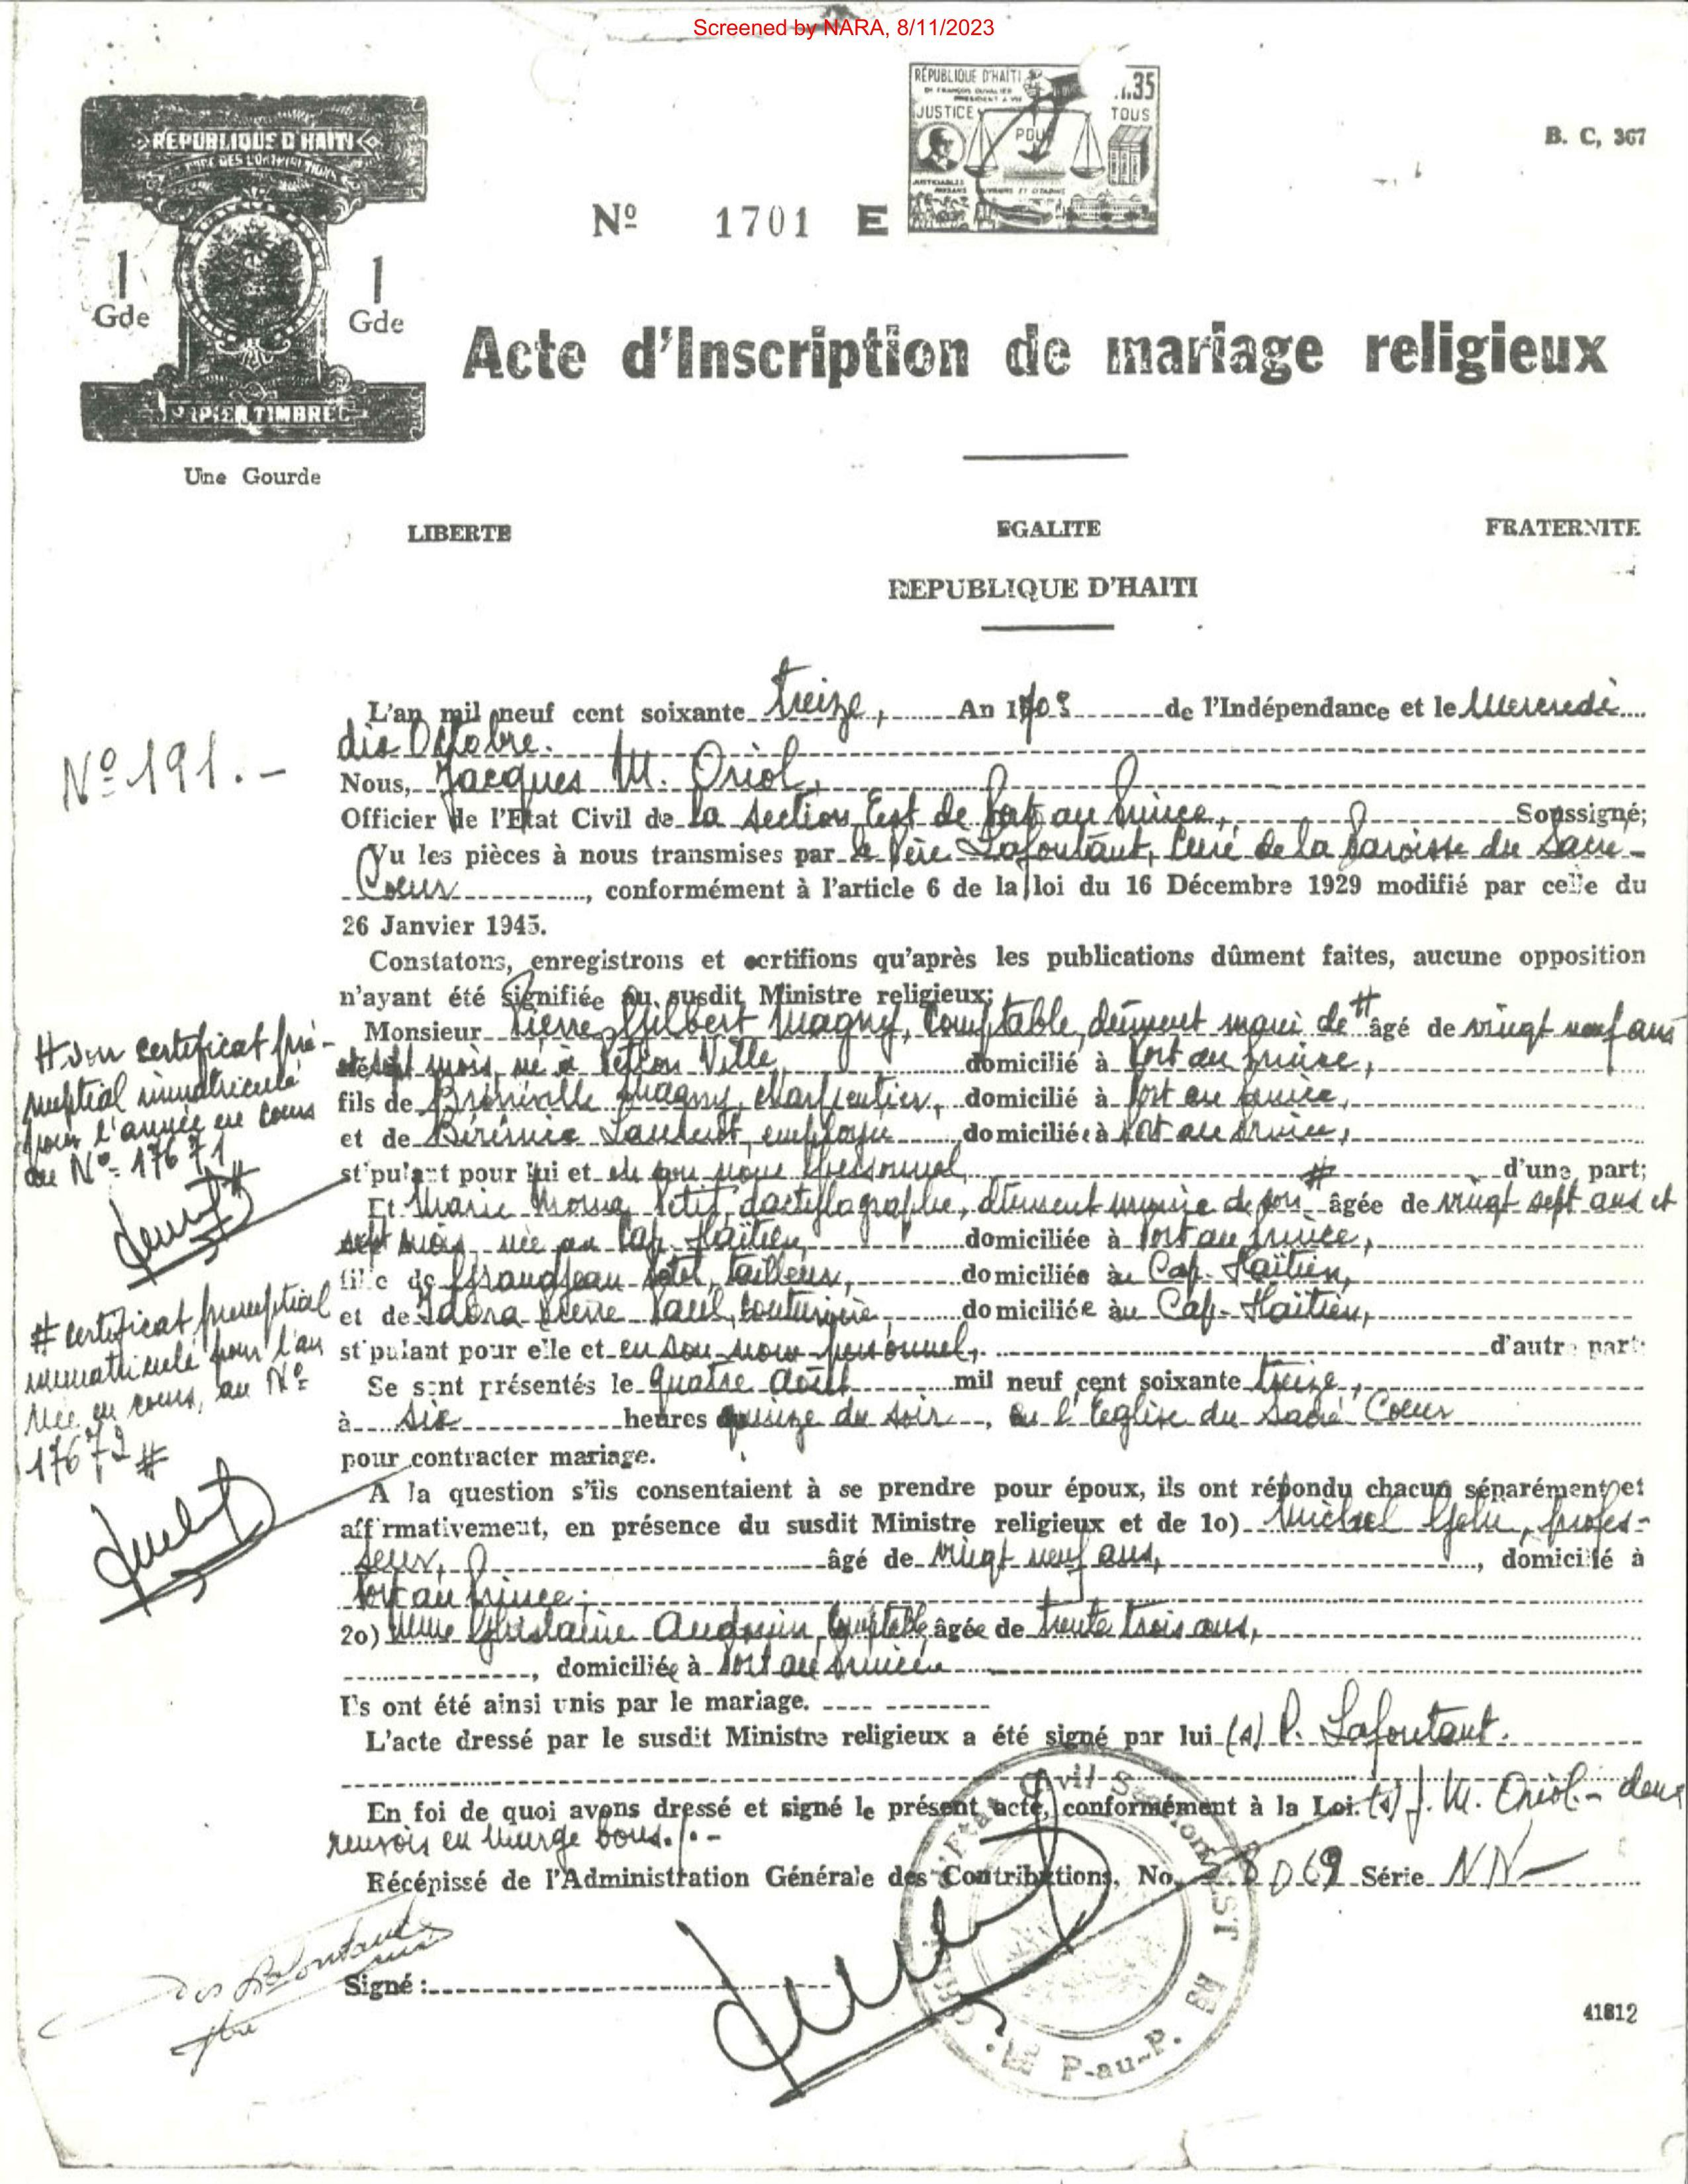 Screened by NARA, 8/11/2023
REPUBLIQUE D'HAITI
1 Gde
1 Gde
PAPIER TIMBRE
Une Gourde
RÉPUBLIQUE D'HAITI
Dr FRANÇOIS DUVALIER
PRESIDENT A VIE
.35
JUSTICE POUR TOUS
B. C, 367
Nº 1701 E
Acte d'Inscription de mariage religieux
LIBERTE EGALITE FRATERNITE
REPUBLIQUE D'HAITI
Nº 191.-
L'an mil neuf cent soixante treize, An 170e de l'Indépendance et le Mercredi
dix Octobre.
Nous, Jacques M. Oriol,
Officier de l'Etat Civil de la section Est de Port au Prince, Soussigné;
Vu les pièces à nous transmises par le Père Lafontant, Curé de la Paroisse du Sacré-
Coeur, conformément à l'article 6 de la loi du 16 Décembre 1929 modifié par celle du
26 Janvier 1945.
Constatons, enregistrons et certifions qu'après les publications dûment faites, aucune opposition
n'ayant été signifiée au susdit Ministre religieux;
Monsieur Pierre Gilbert Magny, Comptable, dûment muni de # âgé de vingt neuf ans
et sept mois, né à Pétion Ville, domicilié à Port au Prince,
fils de Magny, charpentier, domicilié à Port au Prince,
et de domiciliée à Port au Prince,
stipulant pour lui et en son nom personnel, # d'une part;
Et Marie Petit, dactylographe, dûment munie de son # âgée de vingt sept ans et
sept mois, née au Cap-Haïtien, domiciliée à Port au Prince,
fille de Grandjean tailleur, domiciliée au Cap-Haïtien,
et de Pierre Paul, couturière domiciliée au Cap-Haïtien,
stipulant pour elle et en son nom personnel, d'autre part:
Se sont présentés le quatre Août mil neuf cent soixante treize,
à six heures quinze du soir, en l'Eglise du Sacré Coeur
pour contracter mariage.
A la question s'ils consentaient à se prendre pour époux, ils ont répondu chacun séparément et
affirmativement, en présence du susdit Ministre religieux et de 1o) Michel profes-
seur, âgé de vingt neuf ans, domicilié à
Port au Prince;
2o) Mme Ghislaine Audouin, Comptable, âgée de trente trois ans,
domiciliée à Port au Prince
Ils ont été ainsi unis par le mariage.
L'acte dressé par le susdit Ministre religieux a été signé par lui (s) P. Lafontant.
En foi de quoi avons dressé et signé le présent acte, conformément à la Loi. (s) J. M. Oriol.- deux
renvois en marge bons./.-
Récépissé de l'Administration Générale des Contributions, No. 8069 Série NN-
Signé:
# son certificat pré-
nuptial immatriculé
pour l'année en cours
au Nº 17671
#
# certificat prénuptial
immatriculé pour l'an
née en cours, au Nº
17672 #
P-au-P.
41812